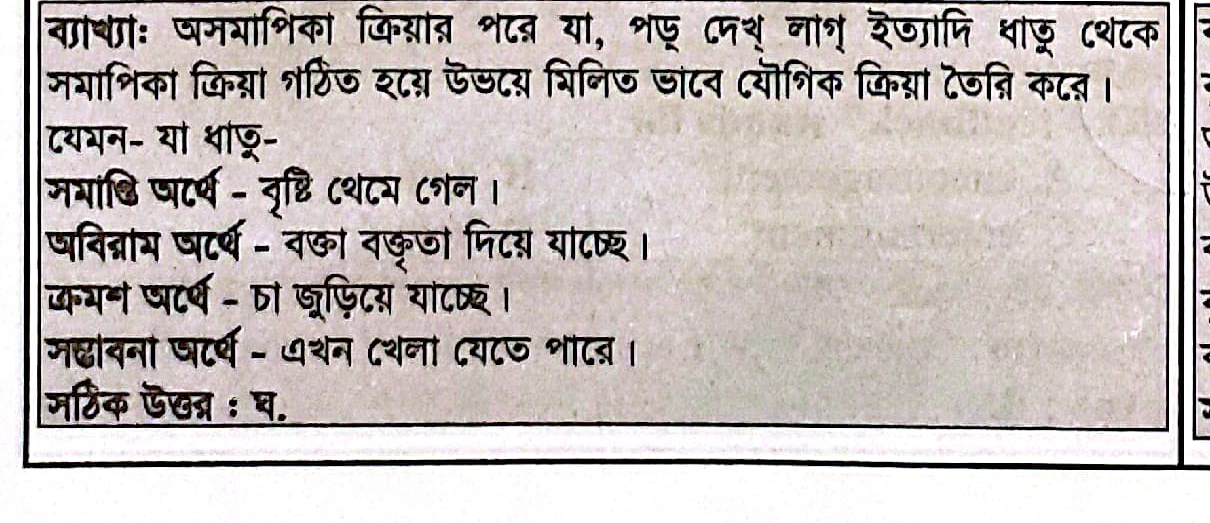 ব্যাখ্যা: অসমাপিকা ক্রিয়ার পরে যা, পড়্ দেখ্ লাগ্ ইত্যাদি ধাতু থেকে
সমাপিকা ক্রিয়া গঠিত হয়ে উভয়ে মিলিত ভাবে যৌগিক ক্রিয়া তৈরি করে।
যেমন- যা ধাতু-
সমাপ্তি অর্থে - বৃষ্টি থেমে গেল।
অবিরাম অর্থে - বক্তা বক্তৃতা দিয়ে যাচ্ছে।
ক্রমশ অর্থে - চা জুড়িয়ে যাচ্ছে।
সম্ভাবনা অর্থে - এখন খেলা যেতে পারে।
সঠিক উত্তর : ঘ.